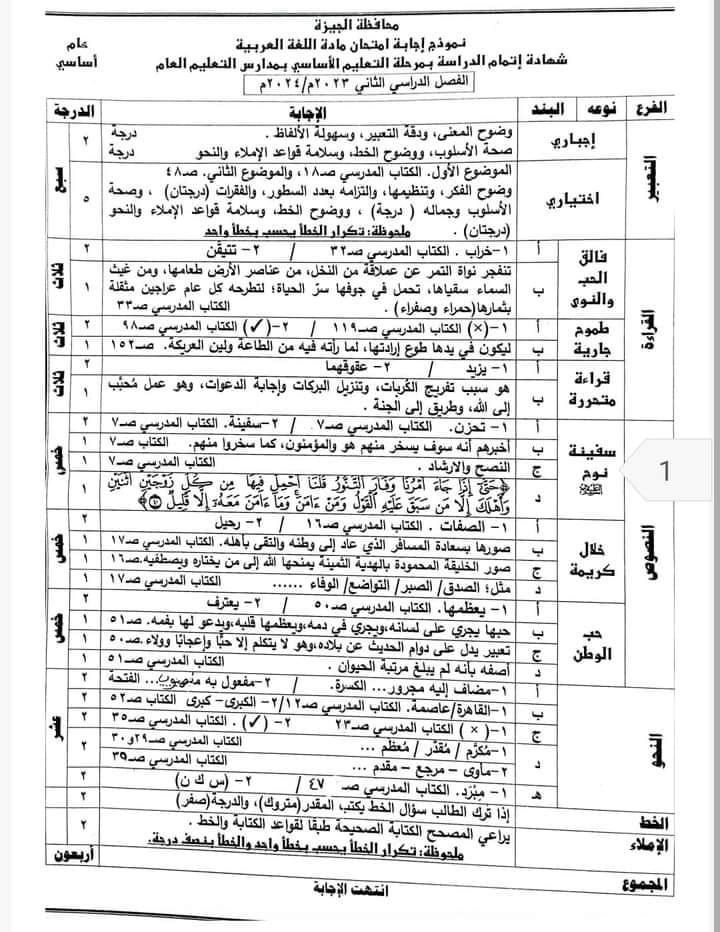 محافظة الجيزة
نموذج إجابة امتحان مادة اللغة العربية
عام
شهادة إتمام الدراسة بمرحلة التعليم الأساسي بمدارس التعليم العام
أساسي
الفصل الدراسي الثاني ٢٠٢٣م/٢٠٢٤م
الفرع نوعه البند الإجابة الدرجة
التعبير
إجباري
وضوح المعنى، ودقة التعبير، وسهولة الألفاظ . درجة
صحة الأسلوب، ووضوح الخط، وسلامة قواعد الإملاء والنحو درجة
٢
سبع
اختياري
الموضوع الأول. الكتاب المدرسي صـ١٨، والموضوع الثاني. صـ٤٨
وضوح الفكر، وتنظيمها، والتزامه بعدد السطور، والفقرات (درجتان) ، وصحة
الأسلوب وجماله ( درجة) ، ووضوح الخط، وسلامة قواعد الإملاء والنحو
(درجتان) . ملحوظة: تكرار الخطأ يحسب بخطأ واحد
٥
القراءة
فالق الحب والنوى
أ ١- خراب . الكتاب المدرسي صـ٣٢ / ٢- تتيقّن ٢
ثلاث
ب تنفجر نواة التمر عن عملاقة من النخل، من عناصر الأرض طعامها، ومن غيث
السماء سقياها، تحمل في جوفها سرّ الحياة؛ لتطرحه كل عام عراجين مثقلة ١
بثمارها(حمراء وصفراء) . الكتاب المدرسي صـ٣٣
طموح جارية
أ ١- (×) الكتاب المدرسي صـ١١٩ / ٢-(✓) الكتاب المدرسي صـ٩٨ ٢
ثلاث
ب ليكون في يدها طوع إرادتها، لما رأته فيه من الطاعة ولين العريكة. صـ١٥٢ ١
قراءة متحررة
أ ١- يزيد / ٢- عقوقهما ٢
ثلاث
ب هو سبب تفريج الكُربات، وتنزيل البركات وإجابة الدعوات، وهو عمل مُحبَّب ١
إلى الله، وطريق إلى الجنة .
النصوص
سفينة نوح
أ ١- تحزن. الكتاب المدرسي صـ٧ / ٢-سفينة. الكتاب المدرسي صـ٧ ٢
خمس
ب أخبرهم أنه سوف يسخر منهم هو والمؤمنون، كما سخروا منهم. الكتاب صـ٧ ١
ج النصح والارشاد . الكتاب المدرسي صـ٧ ١
د ﴿حَتَّىٰ إِذَا جَاءَ أَمْرُنَا وَفَارَ التَّنُّورُ قُلْنَا احْمِلْ فِيهَا مِن كُلٍّ زَوْجَيْنِ اثْنَيْنِ ١
وَأَهْلَكَ إِلَّا مَن سَبَقَ عَلَيْهِ الْقَوْلُ وَمَنْ ءَامَنَ وَمَا ءَامَنَ مَعَهُ إِلَّا قَلِيلٌ﴾
خلال كريمة
أ ١- الصفات . الكتاب المدرسي صـ١٦ / ٢- رحيل ٢
خمس
ب صورها بسعادة المسافر الذي عاد إلى وطنه والتقى بأهله. الكتاب صـ١٧ ١
ج صور الخليقة المحمودة بالهدية الثمينة يمنحها الله إلى من يختاره ويصطفيه.صـ١٦ ١
د مثل؛ الصدق/ الصبر/ التواضع/ الوفاء ...... الكتاب المدرسي صـ١٧ ١
حب الوطن
أ ١- يعظمها. الكتاب المدرسي صـ٥٠ / ٢- يعترف ٢
خمس
ب حبها يجري على لسانه،ويجري في دمه،ويعظمها قلبه،ويدعو لها بفمه. صـ٥١ ١
ج تعبير يدل على دوام الحديث عن بلاده،وهو لا يتكلم إلا حبًّا وإعجابًا وولاء.صـ٥٠ ١
د أصفه بأنه لم يبلغ مرتبة الحيوان . الكتاب المدرسي صـ٥١ ١
النحو
أ ١-مضاف إليه مجرور... الكسرة. / ٢-مفعول به منصوب... الفتحة ٢
عشر
ب ١-القاهرة/عاصمة. الكتاب المدرسي صـ١٢/ ٢- الكبرى- كبرى الكتاب صـ٥٢ ٢
ج ١-( × ) الكتاب المدرسي صـ٢٣ ٢- (✓) . الكتاب المدرسي صـ٣٥ ٢
د ١-مُكرَّم / مُقدَّر / مُعظَّم ... الكتاب المدرسي صـ٢٩و٣٠ ٢
٢-مأوى – مرجع – مقدم ... الكتاب المدرسي صـ٣٩
هـ ١- مِبْرَد. الكتاب المدرسي صـ ٤٧ / ٢- (س ك ن) ٢
الخط إذا ترك الطالب سؤال الخط يكتب المقدر(متروك)، والدرجة(صفر) ٢
الإملاء يراعي المصحح الكتابة الصحيحة طبقًا لقواعد الكتابة والخط . ٢
ملحوظة: تكرار الخطأ يحسب بخطأ واحد والخطأ بنصف درجة.
المجموع انتهت الإجابة أربعون
1